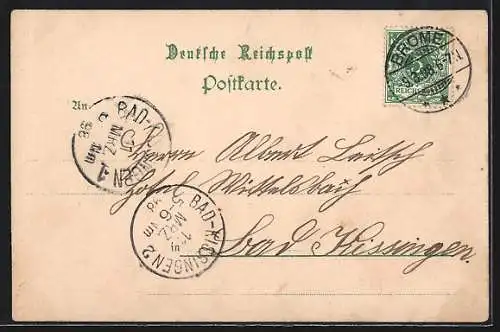 Deutsche Reichspost
Postkarte.
BROME
REICHSPOST
An
BAD-KISSINGEN 1
MRZ
98
Nm
Herrn Albert
Hotel Wittelsbach
Bad Kissingen
BAD-KISSINGEN 2
MRZ
98